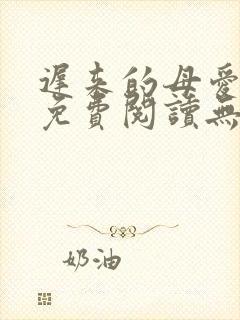 遲来的母愛
免費閱讀無
奶油